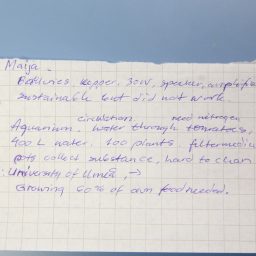 Maija.
Batteries, copper, 30W, speaker, amplifie
sustainable but did not work.
circulation need nitrogen
Aquarium. water through tomatoes,
400 L water. 100 plants. filtermedia
pots collect substance, hard to clean
University of Umeå, →
Growing 60% of own food needed.